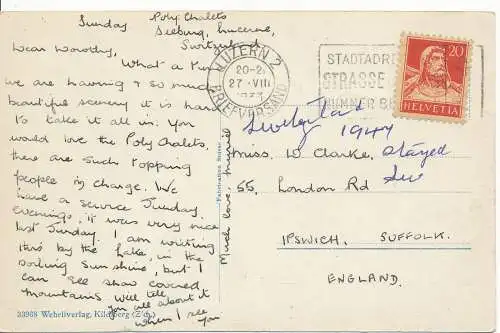 Sunday Poly Chalets
Seeburg, Lucerne,
Switzerland
Dear Dorothy,
What a fun
we are having & so much
beautiful scenery it is hard
to take it all in. You
would love the Poly Chalets,
there are such ripping
people in charge. We
have a service Sunday
evenings, it was very nice
last Sunday. I am writing
this by the lake, in the
boiling sunshine, but I
can see snow covered
mountains. Will tell
you all about it
when I see
you
Much love, Muriel
33968 Wehrliverlag, Kilchberg (Zch.)
Fabrication Suisse
LUZERN 2
20-2
27·VIII
BRIEFVERSAND
STADTADR
STRASSE
NUMMER
20
HELVETIA
Switzerland
1947
Stayed
Miss. D Clarke,
55, London Rd
IPSWICH, SUFFOLK.
ENGLAND.